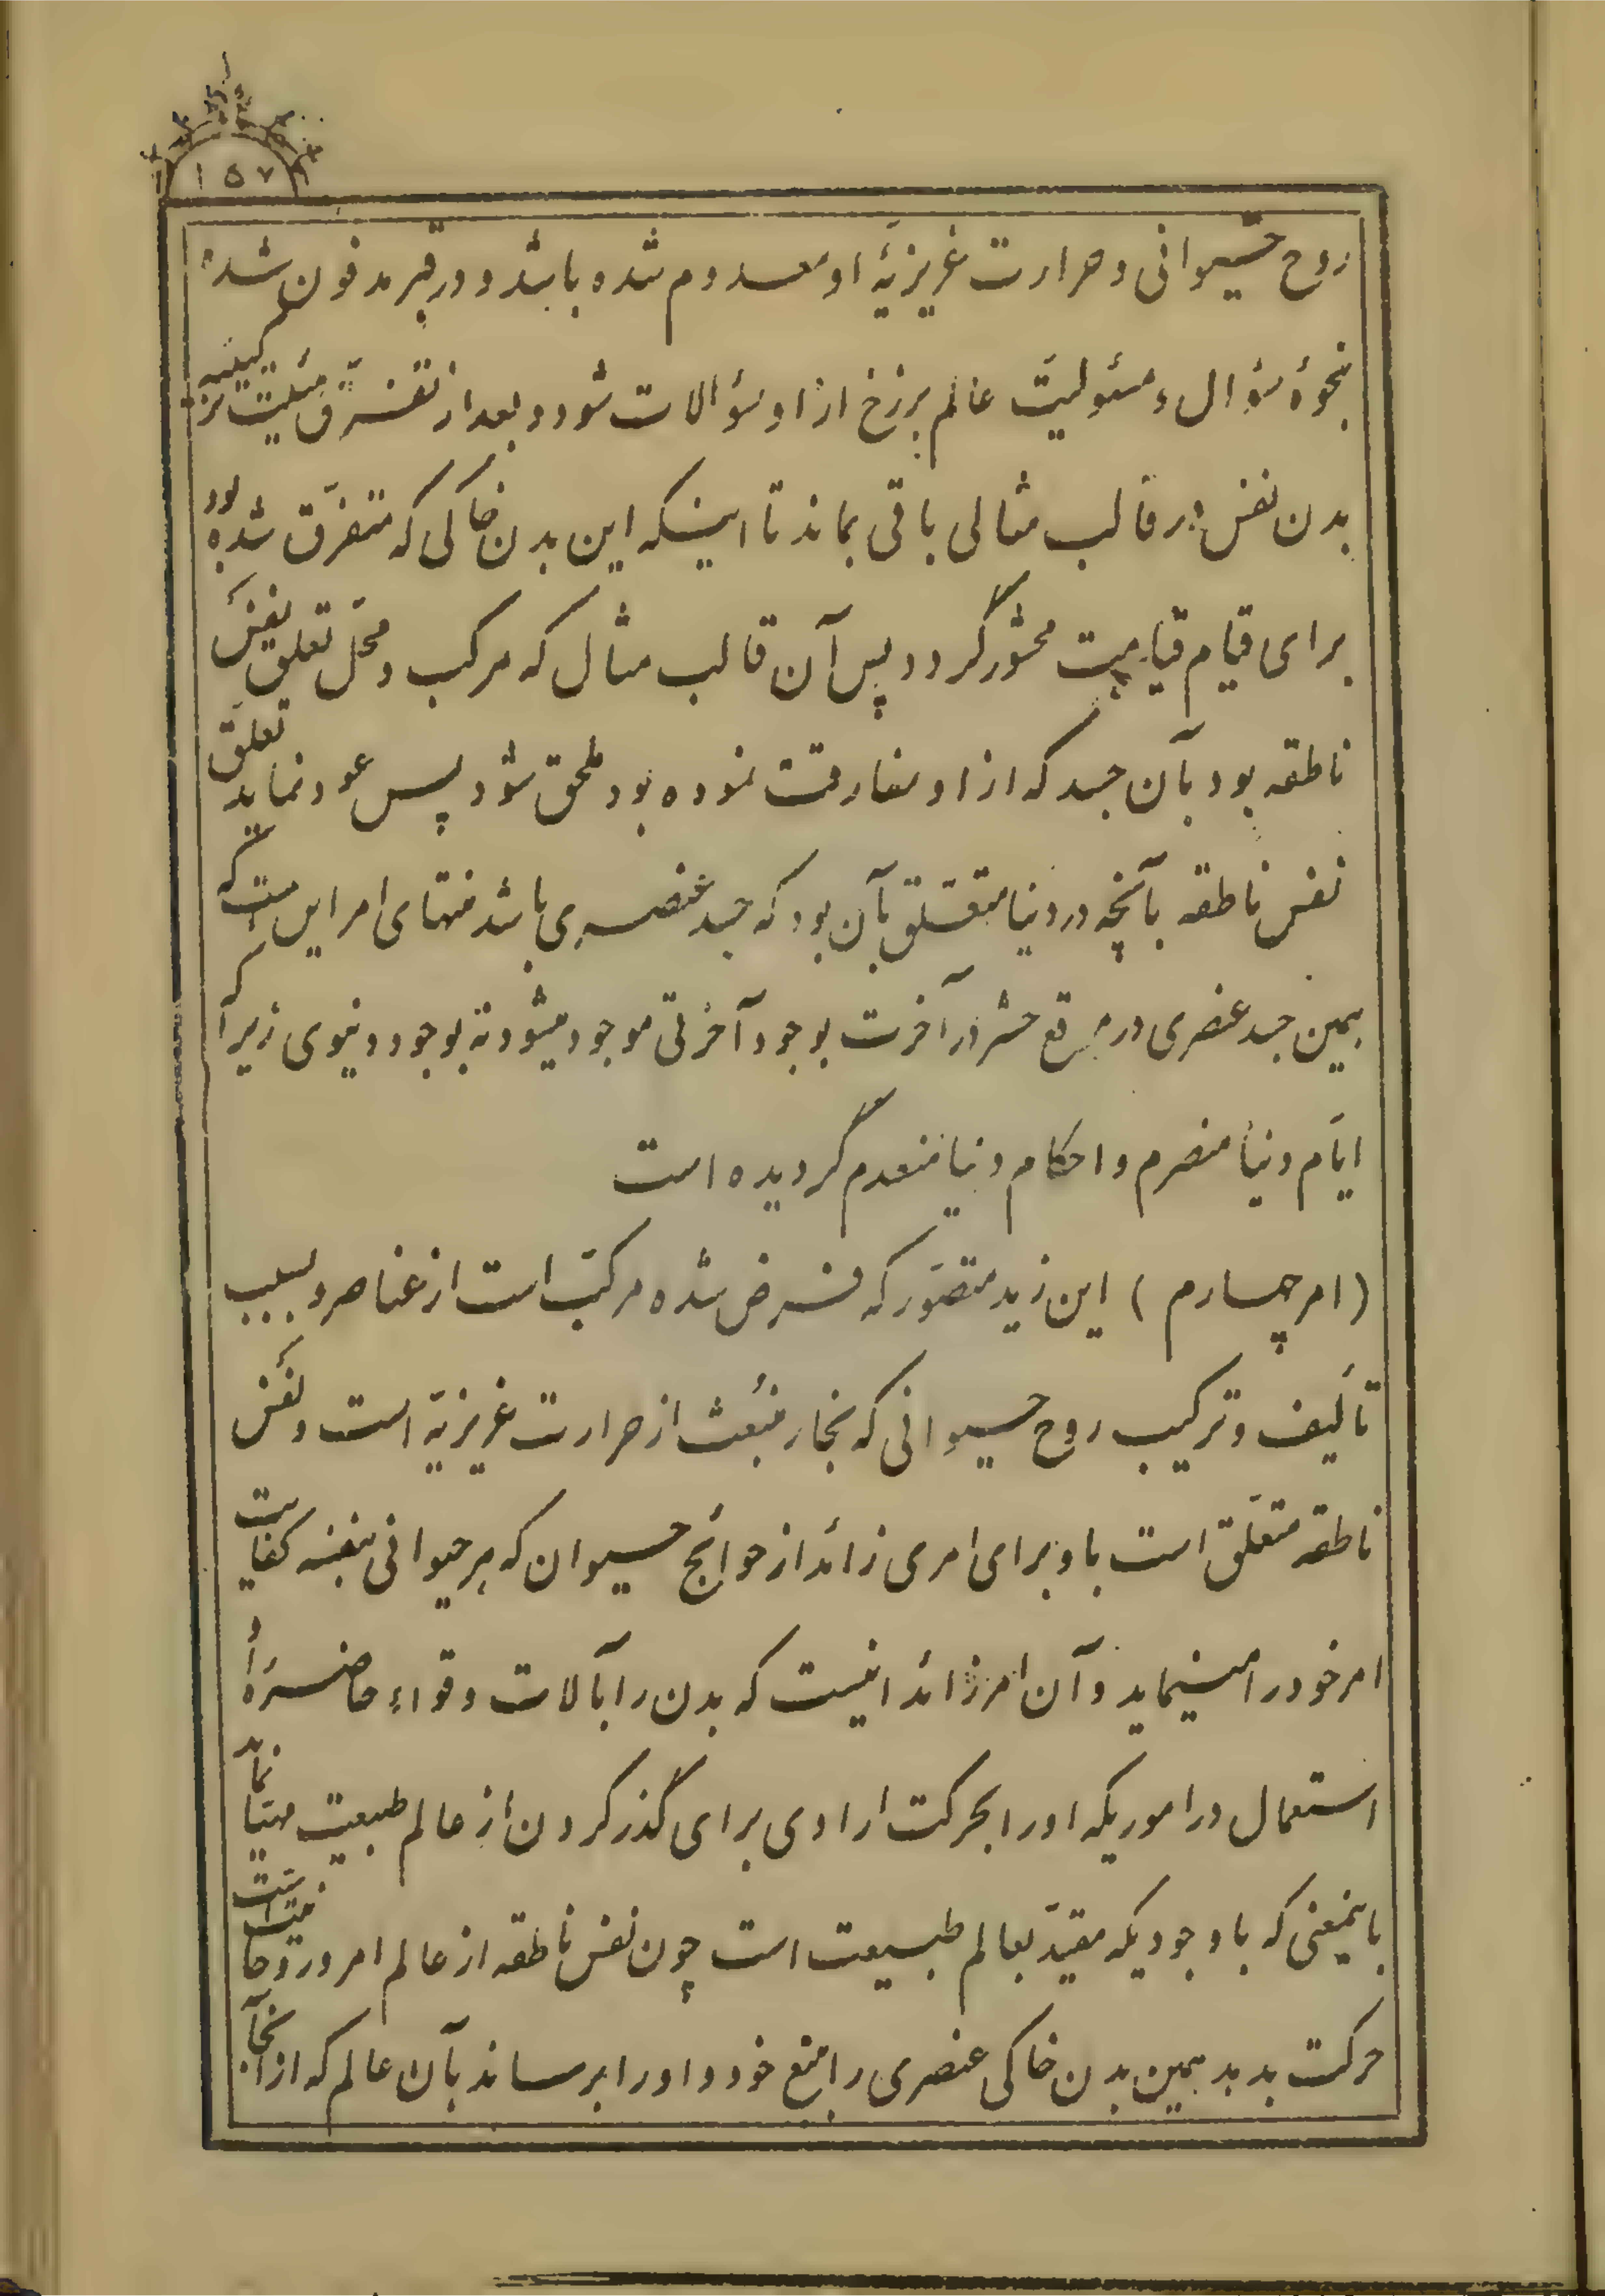 ١٥٧
روح حیوانی و حرارت غریزیّهٔ او معدوم شده باشد و در قبر مدفون شده
بنحوهٔ سؤال و مسئولیّت عالم برزخ از او سؤالات شود و بعد از تفرّق هیئت ترکیبیه
بدن نفس در قالب مثالی باقی بماند تا اینکه این بدن خاکی که متفرّق شده بود
برای قیام قیامت محشور گردد پس آن قالب مثال که مرکب و محلّ تعلق نفس
ناطقه بود بآن جسد که از او مفارقت نموده بود ملحق شود پس عود نماید تعلّق
نفس ناطقه بآنچه در دنیا متعلّق بآن بود که جسد عنصری باشد منتهای امر این است که
همین جسد عنصری در موقع حشر در آخرت بوجود آخرتی موجود میشود نه بوجود دنیوی زیرا که
ایّام دنیا منصرم و احکام دنیا منعدم گردیده است
(امر چهارم) این زید متصوّر که فرض شده مرکّب است از عناصر و بسبب
تألیف و ترکیب روح حیوانی که بخار منبعث از حرارت غریزیّة است و نفس
ناطقه متعلّق است باو برای امری زائد از حوائج حیوان که هر حیوانی بنفسه کفایت
امر خود را مینماید و آن امر زائد اینست که بدن را بآلات و قواء حاضرهٔ او
استعمال در اموریکه او را بحرکت ارادی برای گذر کردن از عالم طبیعت مهیّا نماید
باینمعنی که با وجودیکه مقیّد بعالم طبیعت است چون نفس ناطقه از عالم امر و روحانیت است
حرکت بدهد همین بدن خاکی عنصری را بتبع خود و او را برساند بآن عالم که از آنجا